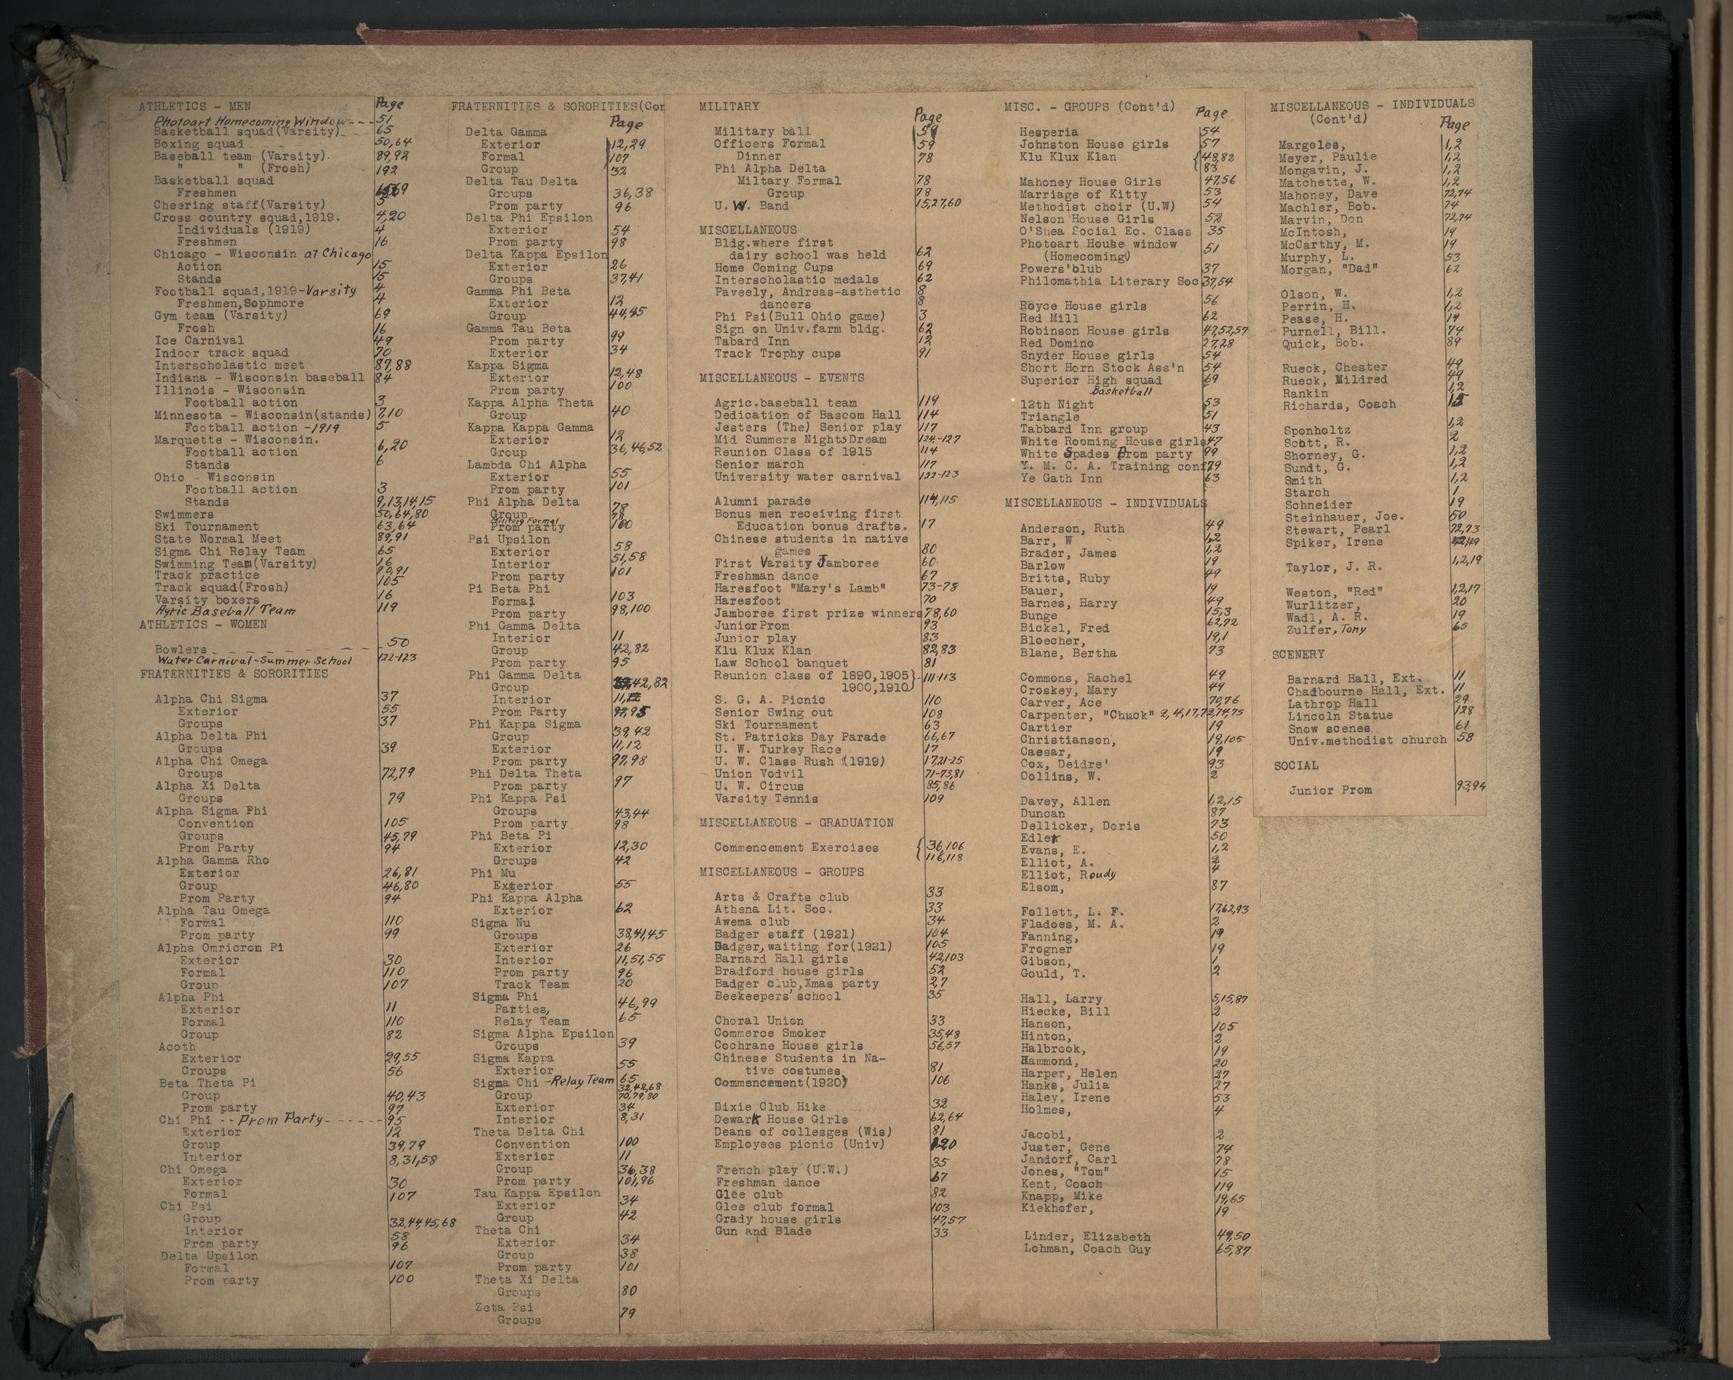 ATHLETICS - MEN Page
Photoart Homecoming Window --- 51
Basketball squad(Varsity) 65
Boxing squad 50,64
Baseball team (Varsity) 89,92
" " (Frosh) 192
Basketball squad
Freshmen
Cheering staff(Varsity) 5
Cross country squad,1919. 4,20
Individuals (1919) 4
Freshmen 16
Chicago - Wisconsin at Chicago
Action 15
Stands 15
Football squad,1919-Varsity 4
Freshmen,Sophmore 4
Gym team (Varsity) 69
Frosh 16
Ice Carnival 49
Indoor track squad 70
Interscholastic meet 87,88
Indiana - Wisconsin baseball 84
Illinois - Wisconsin
Football action 3
Minnesota - Wisconsin(stands) 7,10
Football action -1919 5
Marquette - Wisconsin.
Football action 6,20
Stands 6
Ohio - Wisconsin
Football action 3
Stands 9,13,14,15
Swimmers 50,64,80
Ski Tournament 63,64
State Normal Meet 89,91
Sigma Chi Relay Team 65
Swimming Team(Varsity) 16
Track practice 90,91
Track squad(Frosh) 105
Varsity boxers 16
Agric Baseball Team 119
ATHLETICS - WOMEN
Bowlers 50
Water Carnival-Summer School 122-123
FRATERNITIES & SORORITIES
Alpha Chi Sigma 37
Exterior 55
Groups 37
Alpha Delta Phi
Groups 39
Alpha Chi Omega
Groups 72,79
Alpha Xi Delta
Groups 79
Alpha Sigma Phi
Convention 105
Groups 45,79
Prom Party 94
Alpha Gamma Rho
Exterior 26,81
Group 46,80
Prom Party 94
Alpha Tau Omega
Formal 110
Prom party 99
Alpha Omricron Pi
Exterior 30
Formal 110
Group 107
Alpha Phi
Exterior 11
Formal 110
Group 82
Acoth
Exterior 29,55
Croups 56
Beta Theta Pi
Group 40,43
Prom party 97
Chi Phi -- Prom Party ------ 95
Exterior 12
Group 39,79
Interior 8,31,58
Chi Omega
Exterior 30
Formal 107
Chi Psi
Group 32,44,45,68
Interior 58
Prom party 96
Delta Upsilon
Formal 107
Prom party 100
FRATERNITIES & SORORITIES(Con
Page
Delta Gamma
Exterior 12,29
Formal 107
Group 32
Delta Tau Delta
Groups 36,38
Prom party 96
Delta Phi Epsilon
Exterior 54
Prom party 98
Delta Kappa Epsilon
Exterior 26
Groups 37,41
Gamma Phi Beta
Exterior 12
Group 44,45
Gamma Tau Beta
Prom party 99
Exterior 34
Kappa Sigma
Exterior 12,48
Prom party 100
Kappa Alpha Theta
Group 40
Kappa Kappa Gamma
Exterior 12
Group 36,46,52
Lambda Chi Alpha
Exterior 55
Prom party 101
Phi Alpha Delta
Group 78
Military Formal 78
Prom party 100
Psi Upsilon
Exterior 58
Interior 51,58
Prom party 101
Pi Beta Phi
Formal 103
Prom party 98,100
Phi Gamma Delta
Interior 11
Group 42,82
Prom party 95
Phi Gamma Delta
Group 42,82
Interior 11,
Prom Party 97,95
Phi Kappa Sigma
Group 39,42
Exterior 11,12
Prom party 97,98
Phi Delta Theta
Prom party 97
Phi Kappa Psi
Groups 43,44
Prom party 98
Phi Beta Pi
Exterior 12,30
Groups 42
Phi Mu
Exterior 55
Phi Kappa Alpha
Exterior 62
Sigma Nu
Groups 38,41,45
Exterior 26
Interior 11,51,55
Prom party 96
Track Team 20
Sigma Phi
Parties, 46,99
Relay Team 65
Sigma Alpha Epsilon
Groups 39
Sigma Kappa
Exterior 55
Sigma Chi -Relay Team 65
Group 32,42,68
70,79,80
Exterior 34
Interior 8,31
Theta Delta Chi
Convention 100
Exterior 11
Group 36,38
Prom party 101,96
Tau Kappa Epsilon
Exterior 34
Group 42
Theta Chi
Exterior 34
Group 38
Prom party 101
Theta Xi Delta
Groups 80
Zeta Psi
Groups 79
MILITARY
Page
Military ball 59
Officers Formal 59
Dinner 78
Phi Alpha Delta
Miltary Formal 78
Group 78
U.W. Band 15,27,60
MISCELLANEOUS
Bldg.where first
dairy school was held 62
Home Coming Cups 69
Interscholastic medals 62
Pavely, Andreas-asthetic 8
dancers 8
Phi Psi(Bull Ohio game) 3
Sign on Univ.farm bldg. 62
Tabard Inn 12
Track Trophy cups 91
MISCELLANEOUS - EVENTS
Agric.baseball team 119
Dedication of Bascom Hall 114
Jesters (The) Senior play 117
Mid Summers NightsDream 124,-127
Reunion Class of 1915 114
Senior march 117
University water carnival 122-123
Alumni parade 114,115
Bonus men receiving first
Education bonus drafts. 17
Chinese students in native
games 80
First Varsity Jamboree 60
Freshman dance 67
Haresfoot "Mary's Lamb" 73-78
Haresfoot 70
Jamboree first prize winners 78,60
JuniorProm 93
Junior play 83
Klu Klux Klan 82,83
Law School banquet 81
Reunion class of 1890,1905
1900,1910 }-111-113
S. G. A. Picnic 110
Senior Swing out 108
Ski Tournament 63
St. Patricks Day Parade 66,67
U. W. Turkey Race 17
U. W. Class Rush (1919) 17,21-25
Union Vodvil 71-73,81
U. W. Circus 85,86
Varsity Tennis 109
MISCELLANEOUS - GRADUATION
Commencement Exercises { 36,106
116,118
MISCELLANEOUS - GROUPS
Arts & Crafts club 33
Athena Lit. Soc. 33
Awema club 34
Badger staff (1921) 104
Badger,waiting for(1921) 105
Barnard Hall girls 42,103
Bradford house girls 52
Badger club,Xmas party 27
Beekeepers'school 35
Choral Union 33
Commerce Smoker 35,48
Cochrane House girls 56,57
Chinese Students in Na-
tive costumes 81
Commencement(1920) 106
Dixie Club Hike 32
Dewark House Girls 62,64
Deans of collesges (Wis) 81
Employees picnic (Univ) 120
French play (U.W.) 35
Freshman dance 67
Glee club 82
Glee club formal 103
Grady house girls 47,57
Gun and Blade 33
MISC. - GROUPS (Cont'd) Page
Hesperia 54
Johnston House girls 57
Klu Klux Klan { 48,82
83
Mahoney House Girls 47,56
Marriage of Kitty 53
Methodist choir (U.W) 54
Nelson House Girls 52
O'Shea Social Ec. Class 35
Photoart House window
(Homecoming) 51
Powers'club 37
Philomathia Literary Soc 37,54
Royce House girls 56
Red Mill 62
Robinson House girls 47,52,57
Red Domino 27,28
Snyder House girls 54
Short Horn Stock Ass'n 54
Superior High squad 69
Basketball
12th Night 53
Triangle 51
Tabbard Inn group 43
White Rooming House girls 47
White Spades Prom party 99
Y. M. C. A. Training conf 79
Ye Gath Inn 63
MISCELLANEOUS - INDIVIDUALS
Anderson, Ruth 49
Barr, W 1,2
Brader, James 1,2
Barlow 19
Britts, Ruby 49
Bauer, 19
Barnes, Harry 49
Bunge 15,3
Bickel, Fred 62,72
Bloecher, 19,1
Blane, Bertha 73
Commons, Rachel 49
Croskey, Mary 49
Carver, Ace 70,76
Carpenter, "Chuck" 2,4,17,72,74,75
Cartier 19
Christianson, 19,105
Caesar, 19
Cox, Deidre' 93
Collins, W. 2
Davey, Allen 1,2,15
Duncan 87
Dellicker, Doris 73
Edler 50
Evans, E. 1,2
Elliot, A. 2
Elliot, Roudy 4
Elsom, 87
Follett, L. F. 17,62,93
Fladoes, M. A. 2
Fanning, 19
Frogner 19
Gibson, 1
Gould, T. 2
Hall, Larry 5,15,87
Hiecke, Bill 2
Hanson, 105
Hinton, 2
Halbrook, 19
Hammond, 20
Harper, Helen 27
Hanks, Julia 27
Haley, Irene 53
Holmes, 4
Jacobi, 2
Juster, Gene 74
Jandorf, Carl 78
Jones, "Tom" 15
Kent, Coach 119
Knapp, Mike 19,65
Kiekhofer, 19
Linder, Elizabeth 49,50
Lohman, Coach Guy 65,87
MISCELLANEOUS - INDIVIDUALS
(Cont'd) Page
Margoles, 1,2
Meyer, Paulie 1,2
Mongavin, J. 1,2
Matchette, W. 1,2
Mahoney, Dave 72,74
Machler, Bob. 74
Marvin, Don 72,74
McIntosh, 19
McCarthy, M. 19
Murphy, L. 53
Morgan, "Dad" 62
Olson, W. 1,2
Perrin, H. 1,2
Pease, H. 19
Purnell, Bill. 74
Quick, Bob. 89
Rueck, Chester 49
Rueck, Mildred 49
Rankin 1,2
Richards, Coach 15
Sponholtz 1,2
Schtt, R. 2
Shorney, G. 1,2
Sundt, G. 1,2
Smith 1,2
Starch 1
Schneider 19
Steinhauer, Joe. 50
Stewart, Pearl 72,73
Spiker, Irene
Taylor, J. R. 1,2,19
Weston, "Red" 1,2,17
Wurlitzer, 20
Wadl, A. R. 19
Zulfer, Tony 65
SCENERY
Barnard Hall, Ext. 11
Chadbourne Hall, Ext. 11
Lathrop Hall 29
Lincoln Statue 128
Snow scenes 61
Univ.methodist church 58
SOCIAL
Junior Prom 93,94